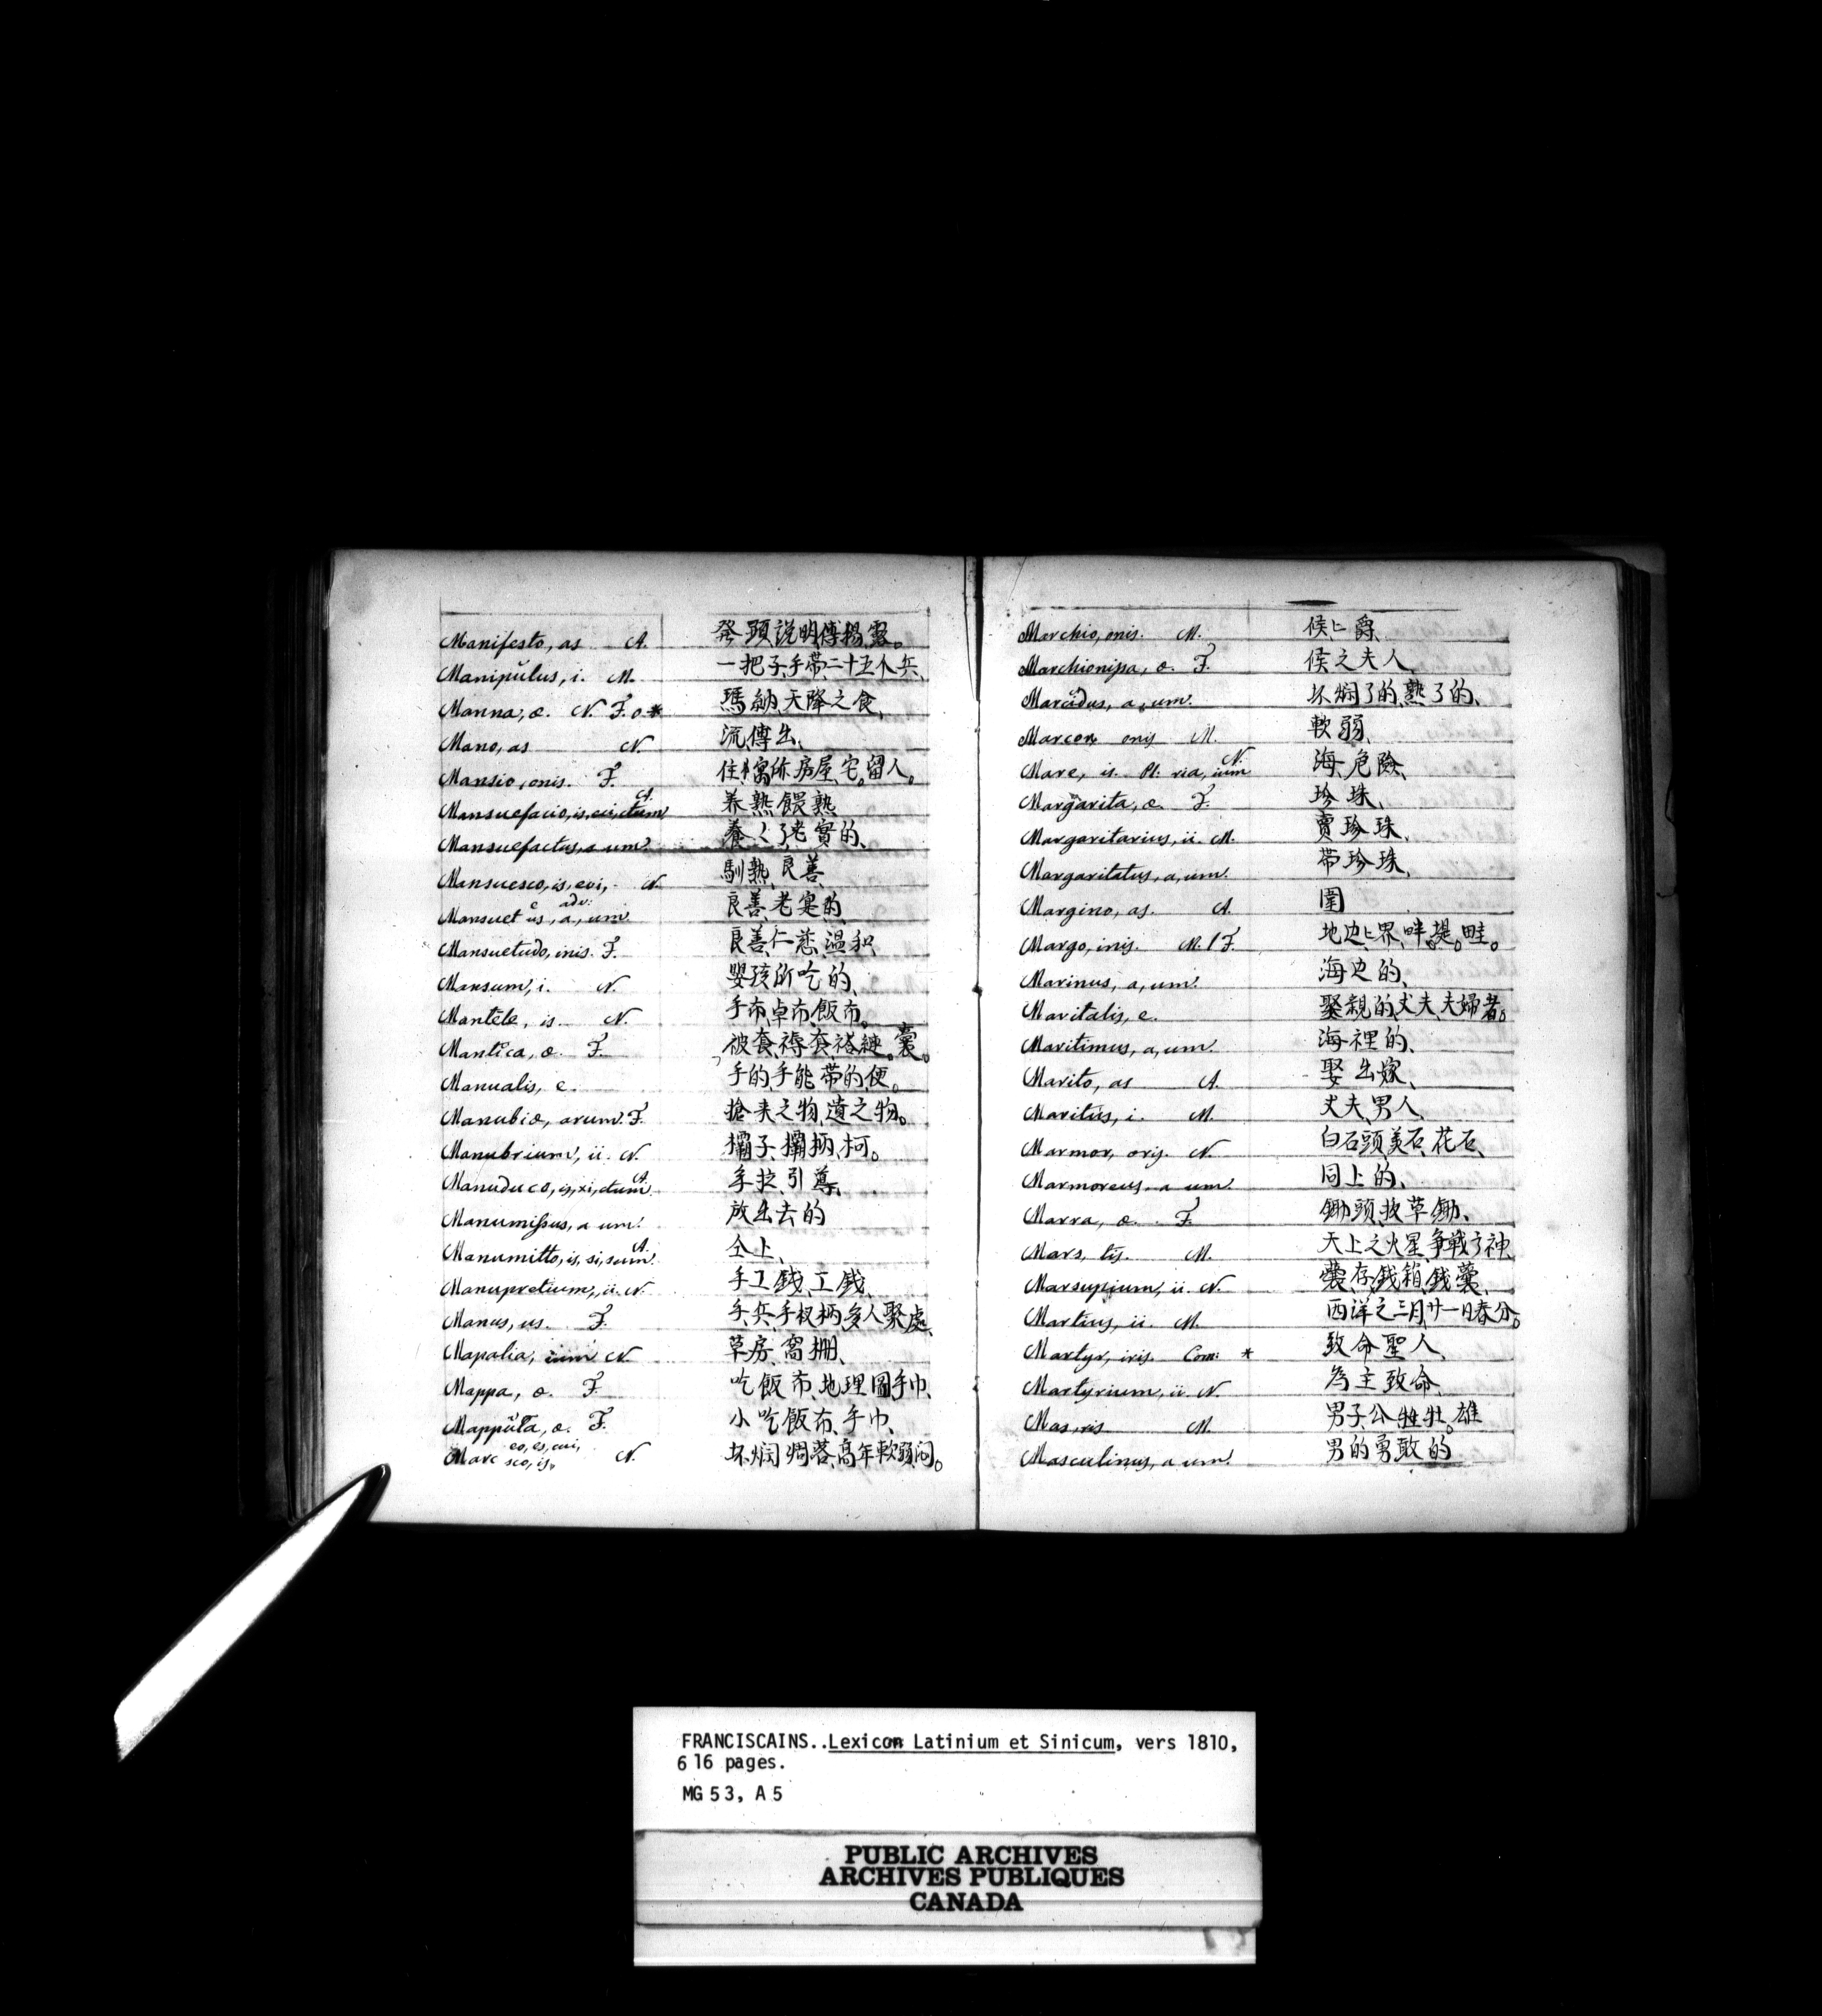 Manifesto, as A. 發顯說明傳揚露。
Manipŭlus, i. M. 一把子、手帶、二十五个兵、
Manna, æ. N. F. o * 瑪納、天降之食、
Mano, as N 流、傳出、
Mansio, onis. F. 房屋、宅。留人。
Mansuefacio, is, eci, ctum A. 养熟、餵熟
Mansuefactus, a um. 老實的、
Mansuesco, is, evi, N. 馴熟、良善、
Mansuetus, a, um. e adv: 良善、老实的、
Mansuetudo, inis. F. 良善、仁慈、溫和、
Mansum, i. N. 嬰孩所吃的、
Mantēle, is. N. 手布、卓布、飯布。
Mantica, æ. F. 被套、褥套、褡褳。囊。
Manualis, e. 手的、手能帶的、便。
Manubiæ, arum. F. 搶来之物、遺之物。
Manubrium, ii. N. 欛子、欛柄、柯。
Manuduco, is, xi, ctum A. 手拉、引導、
Manumissus, a um. 放出去的
Manumitto, is, si, sum A. 仝上、
Manupretium, ii. N. 手工錢、工錢、
Manus, us. F. 手、兵、手杈、柄、多人聚處、
Mapalia, ium N. 草房、窩棚、
Mappa, æ. F. 吃飯布、地理圖、手巾、
Mappŭla, æ. F. 小吃飯布、手巾、
Marc eo, es, cui, sco, is, N. 坏、焖、凋落、高年、軟弱、闷。
Marchio, onis. M. 侯ヒ爵、
Marchionissa, æ. F. 侯之夫人
Marcĭdus, a, um. 坏焖了的、熟了的、
Marcor onis M. 軟弱、
Mare, is. Pl: ria, ium N. 海、危險、
Margarita, æ. F. 珍珠、
Margaritarius, ii. M. 賣珍珠、
Margaritatus, a, um. 帶珍珠、
Margino, as. A. 圍
Margo, inis. M. / F. 地边ヒ界、畔。堤。畦。
Marinus, a, um. 海边的、
Maritalis, e. 娶親的、丈夫、夫婦者。
Maritimus, a, um. 海裡的、
Marito, as A. 娶、出嫁、
Maritus, i. M. 丈夫、男人、
Marmor, oris. N. 白石頭、美石、花石、
Marmoreus, a um. 同上的、
Marra, æ. F. 鋤頭、拔草鋤、
Mars, tis. M. 天上之火星、争戰之神
Marsupium, ii. N. 囊、存錢箱、錢囊、
Martius, ii. M. 西洋之三月、廿一日春分。
Martyr, iris. Com: * 致命聖人、
Martyrium, ii N. 為主致命
Mas, ris M. 男子、公、牲牡。雄
Masculinus, a um. 男的、勇敢的
FRANCISCAINS..Lexicon Latinium et Sinicum, vers 1810,
616 pages.
MG 53, A 5
PUBLIC ARCHIVES
ARCHIVES PUBLIQUES
CANADA